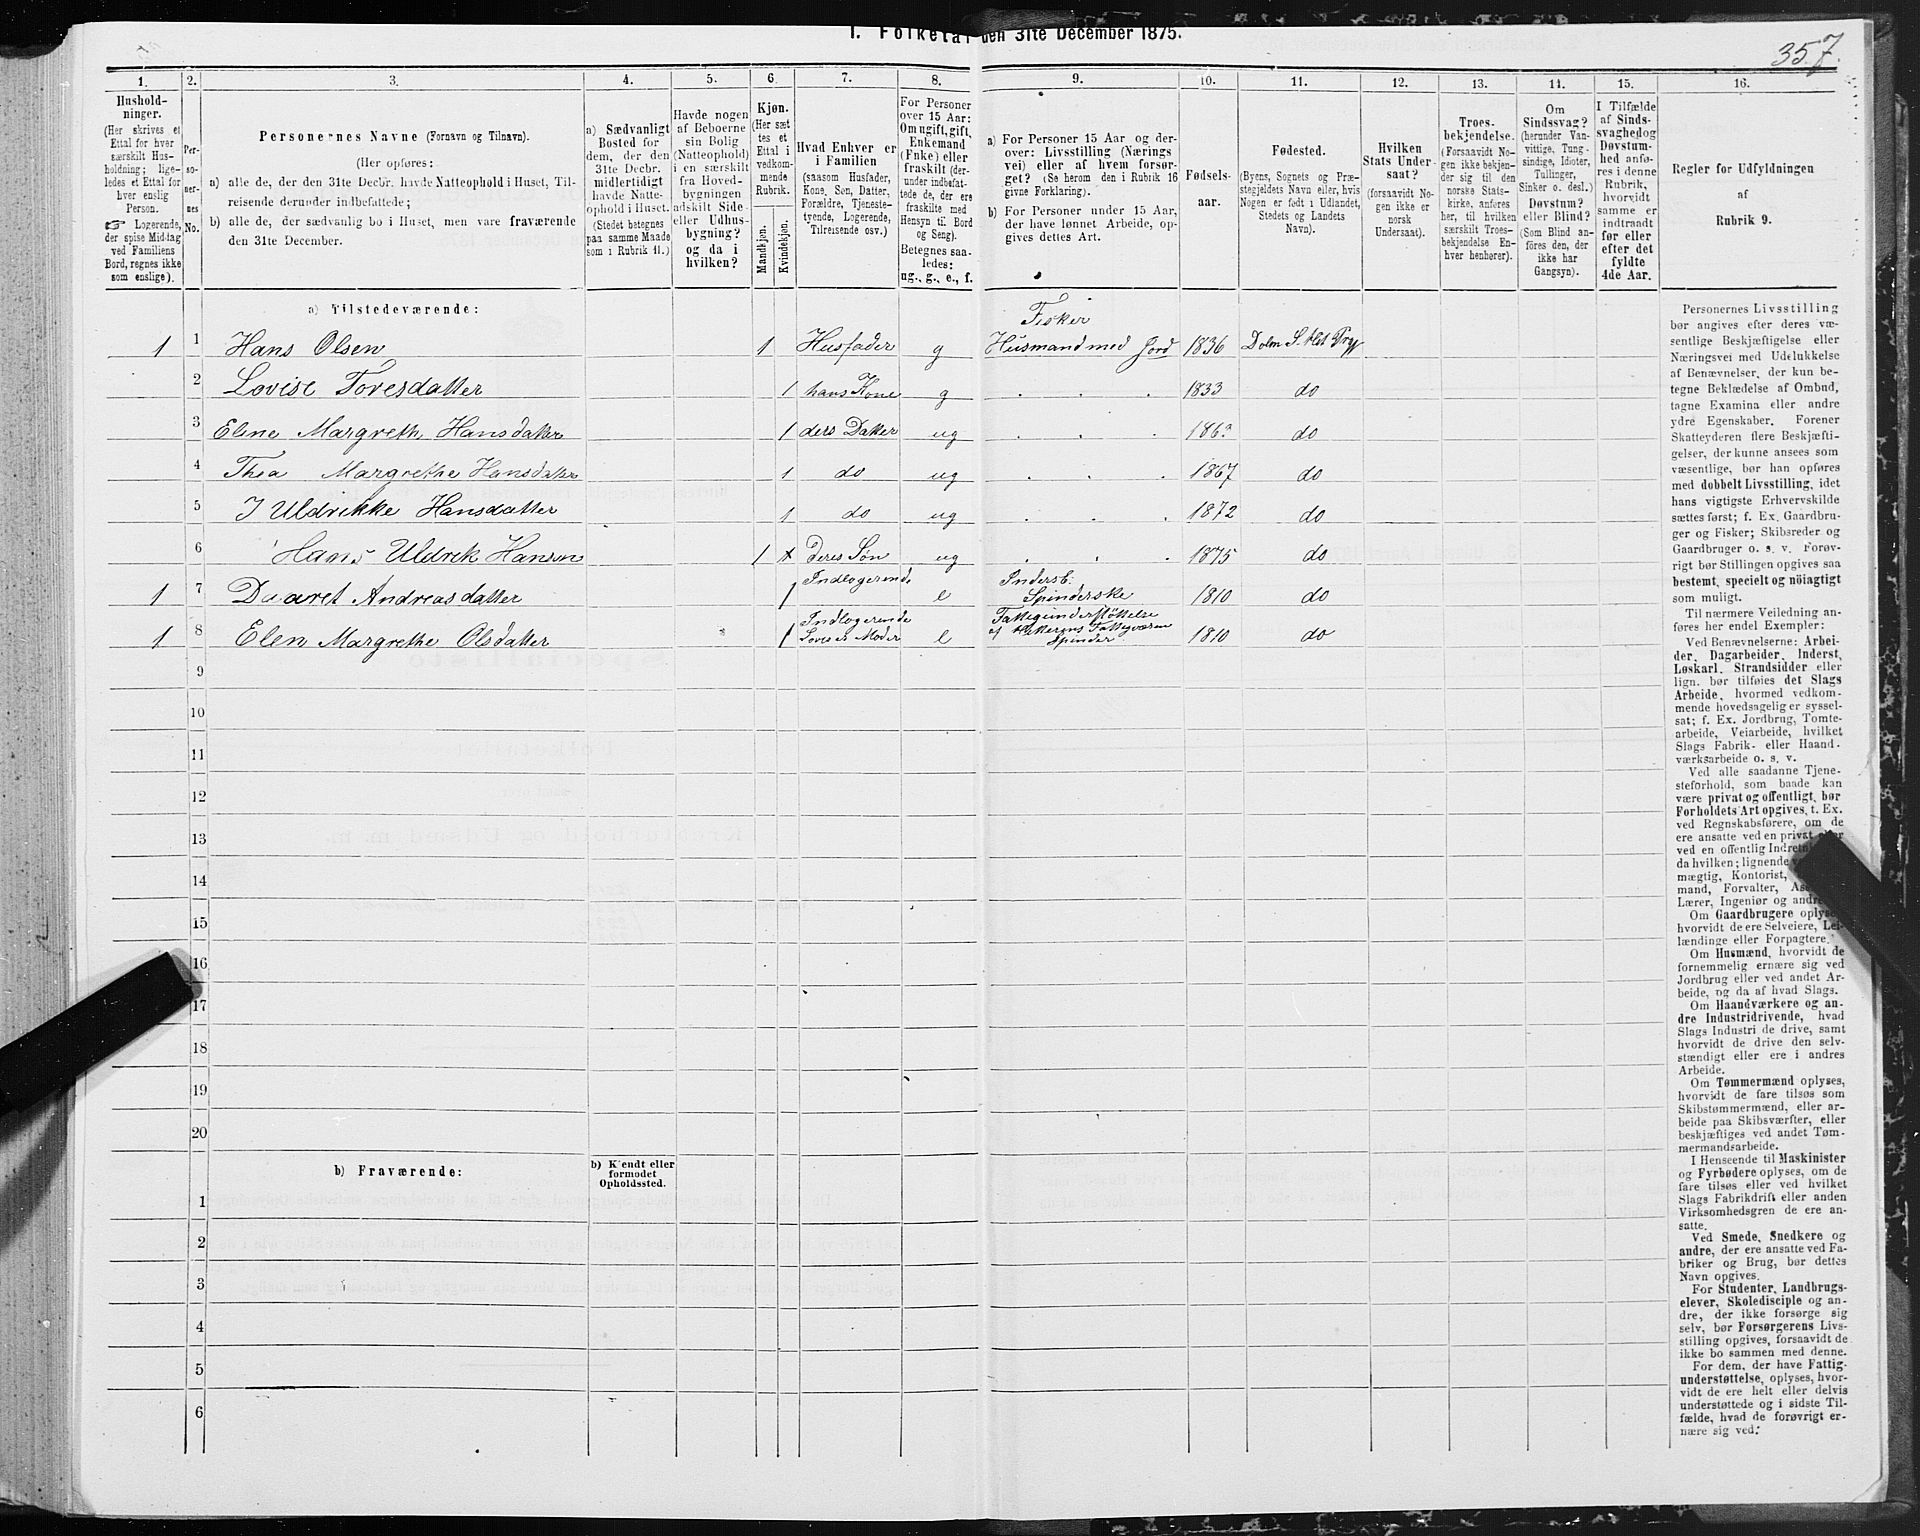 I. Folketal den 31te December 1875.
357.
1. 2. 3. 4. 5. 6. 7. 8. 9. 10. 11. 12. 13. 14. 15. 16.
Hushold-
ninger.
(Her skrives et
Ettal for hver
særskilt Hus-
holdning; lige-
ledes et Ettal for
hver enslig
Person.
☞ Logerende,
der spise Middag
ved Familiens
Bord, regnes ikke
som enslige).
Per-
so-
ner-
nes
No.
Personernes Navne (Fornavn og Tilnavn).
(Her opføres:
a) alle de, der den 31te Decbr. havde Natteophold i Huset, Til-
reisende derunder indbefattede;
b) alle de, der sædvanlig bo i Huset, men vare fraværende
den 31te December.
a) Sædvanligt
Bosted for
dem, der den
31te Decbr.
midlertidigt
havde Natte-
ophold i Huset.
(Stedet betegnes
paa samme Maade
som i Rubrik 11.)
Havde nogen
af Beboerne
sin Bolig
(Natteophold)
i en særskilt
fra Hoved-
bygningen
adskilt Side-
eller Udhus-
bygning?
og da i
hvilken?
Kjøn.
(Her sæt-
tes et
Ettal i
vedkom-
mende
Rubrik.
Mandkjøn.
Kvindekjøn.
Hvad Enhver er
i Familien
(saasom Husfader,
Kone, Søn, Datter,
Forældre, Tjeneste-
tyende, Logerende,
Tilreisende osv.)
For Personer
over 15 Aar:
Om ugift, gift,
Enkemand
(Enke) eller
fraskilt (der-
under indbefat-
tede de, der ere
fraskilte med
Hensyn til Bord
og Seng).
Betegnes saa-
ledes:
ug., g., e., f.
a) For Personer 15 Aar og der-
over: Livsstilling (Nærings
vei) eller af hvem forsør-
get? (Se herom den i Rubrik 16
givne Forklaring).
b) For Personer under 15 Aar,
der have lønnet Arbeide, op-
gives dettes Art.
Fødsels-
aar.
Fødested.
(Byens, Sognets og Præ-
stegjeldets Navn eller, hvis
Nogen er født i Udlandet,
Stedets og Landets
Navn).
Hvilken
Stats Under-
saat?
(forsaavidt No-
gen ikke er
norsk
Undersaat).
Troes-
bekjendelse.
(Forsaavidt No-
gen ikke bekjen-
der sig til den
norske Stats-
kirke, anføres
her, til hvilken
særskilt Troes-
bekjendelse En-
hver henhører).
Om
Sindssvag?
(herunder Van-
vittige, Tung-
sindige, Idioter,
Tullinger,
Sinker o. desl.)
Døvstum?
eller Blind?
(Som Blind an-
føres den, der
ikke har
Gangsyn).
I Tilfælde
af Sinds-
svaghed og
Døvstum-
hed anfø-
res i denne
Rubrik,
hvorvidt
samme er
indtraadt
før eller
efter det
fyldte
4de Aar.
Regler for Udfyldningen
af
Rubrik 9.
a) Tilstedeværende:
Fisker
1 1 Hans Olsen 1 Husfader g Husmand med Jord 1836 Dolm S.
2 Lovise Toresdatter 1 hans Kone g 1833 do
3 Elene Margreth Hansdatter 1 ders Datter ug do
4 Thea Margrethe Hansdatter 1 do ug 1867 do
5 Uldrikke Hansdatter 1 do ug 1872 do
6 Hans Uldrik Hansen 1 Deres Søn ug 1875 do
Indlogerende Indersb:
1 7 Daaret Andreasdatter 1 e Spinderske 1810 do
Indlogerende Fattigunderstøttelse
1 8 Elen Margrethe Olsdatter 1 Lovises Moder e af Fattigvæsen 1810 do
Spinder
9
10
11
12
13
14
15
16
17
18
19
20
b) Fraværende:
b) Kjendt eller
formodet
Opholdssted.
1
2
3
4
5
6
Personernes Livsstilling
bør angives efter deres væ-
sentlige Beskjæftigelse eller
Næringsvei med Udelukkelse
af Benævnelser, der kun be-
tegne Beklædelse af Ombud,
tagne Examina eller andre
ydre Egenskaber. Forener
Skatteyderen flere Beskjæfti-
gelser, der kunne ansees som
væsentlige, bør han opføres
med dobbelt Livsstilling, idet
hans vigtigste Erhvervskilde
sættes først; f. Ex. Gaardbru-
ger og Fisker; Skibsreder og
Gaardbruger o. s. v. Forøv-
rigt bør Stillingen opgives saa
bestemt, specielt og nöiagtigt
som muligt.
Til nærmere Veiledning an-
føres her endel Exempler:
Ved Benævnelserne: Arbei-
der, Dagarbeider, Inderst,
Løskarl, Strandsidder eller
lign. bør tilføies det Slags
Arbeide, hvormed vedkom-
mende hovedsagelig er syssel-
sat; f. Ex. Jordbrug, Tomte-
arbeide, Veiarbeide, hvilket
Slags Fabrik- eller Haand-
værksarbeide o. s. v.
Ved alle saadanne Tjene-
steforhold, som baade kan
være privat og offentligt, bør
Forholdets Art opgives, t. Ex.
ved Regnskabsførere, om de
ere ansatte ved en privat eller
ved en offentlig
da hvilken; lignende
mægtig, Kontorist,
mand, Forvalter,
Lærer, Ingeniør og
Om Gaardbrugere
hvorvidt de ere Selveiere, Lei-
lændinge eller Forpagtere.
Om Husmænd, hvorvidt de
fornemmelig ernære sig ved
Jordbrug eller ved andet Ar-
beide, og da af hvad Slags.
Om Haandværkere og an-
dre Industridrivende, hvad
Slags Industri de drive, samt
hvorvidt de drive den selv-
stændigt eller ere i andres
Arbeide.
Om Tømmermænd oplyses,
hvorvidt de fare tilsøs som
Skibstømmermænd, eller ar-
beide paa Skibsværfter, eller
beskjæftiges ved andet Tøm-
mermandsarbeide.
I Henseende til Maskinister
og Fyrbødere oplyses, om de
fare tilsøs eller ved hvilket
Slags Fabrikdrift eller anden
Virksomhedsgren de ere an-
satte.
Ved Smede, Snedkere og
andre, der ere ansatte ved Fa-
briker og Brug, bør dettes
Navn opgives.
For Studenter, Landbrugs-
elever, Skoledisciple og an-
dre, der ikke forsørge sig
selv, bør Forsørgerens Livs-
stilling opgives, forsaavidt de
ikke bo sammen med denne.
For dem, der have Fattig-
understøttelse, oplyses, hvor-
vidt de ere helt eller delvis
understøttede og i sidste Til-
fælde, hvad de forøvrigt er-
nære sig ved.